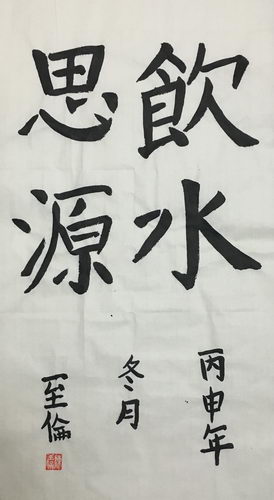 飲水
思源
丙申年
冬月
至倫